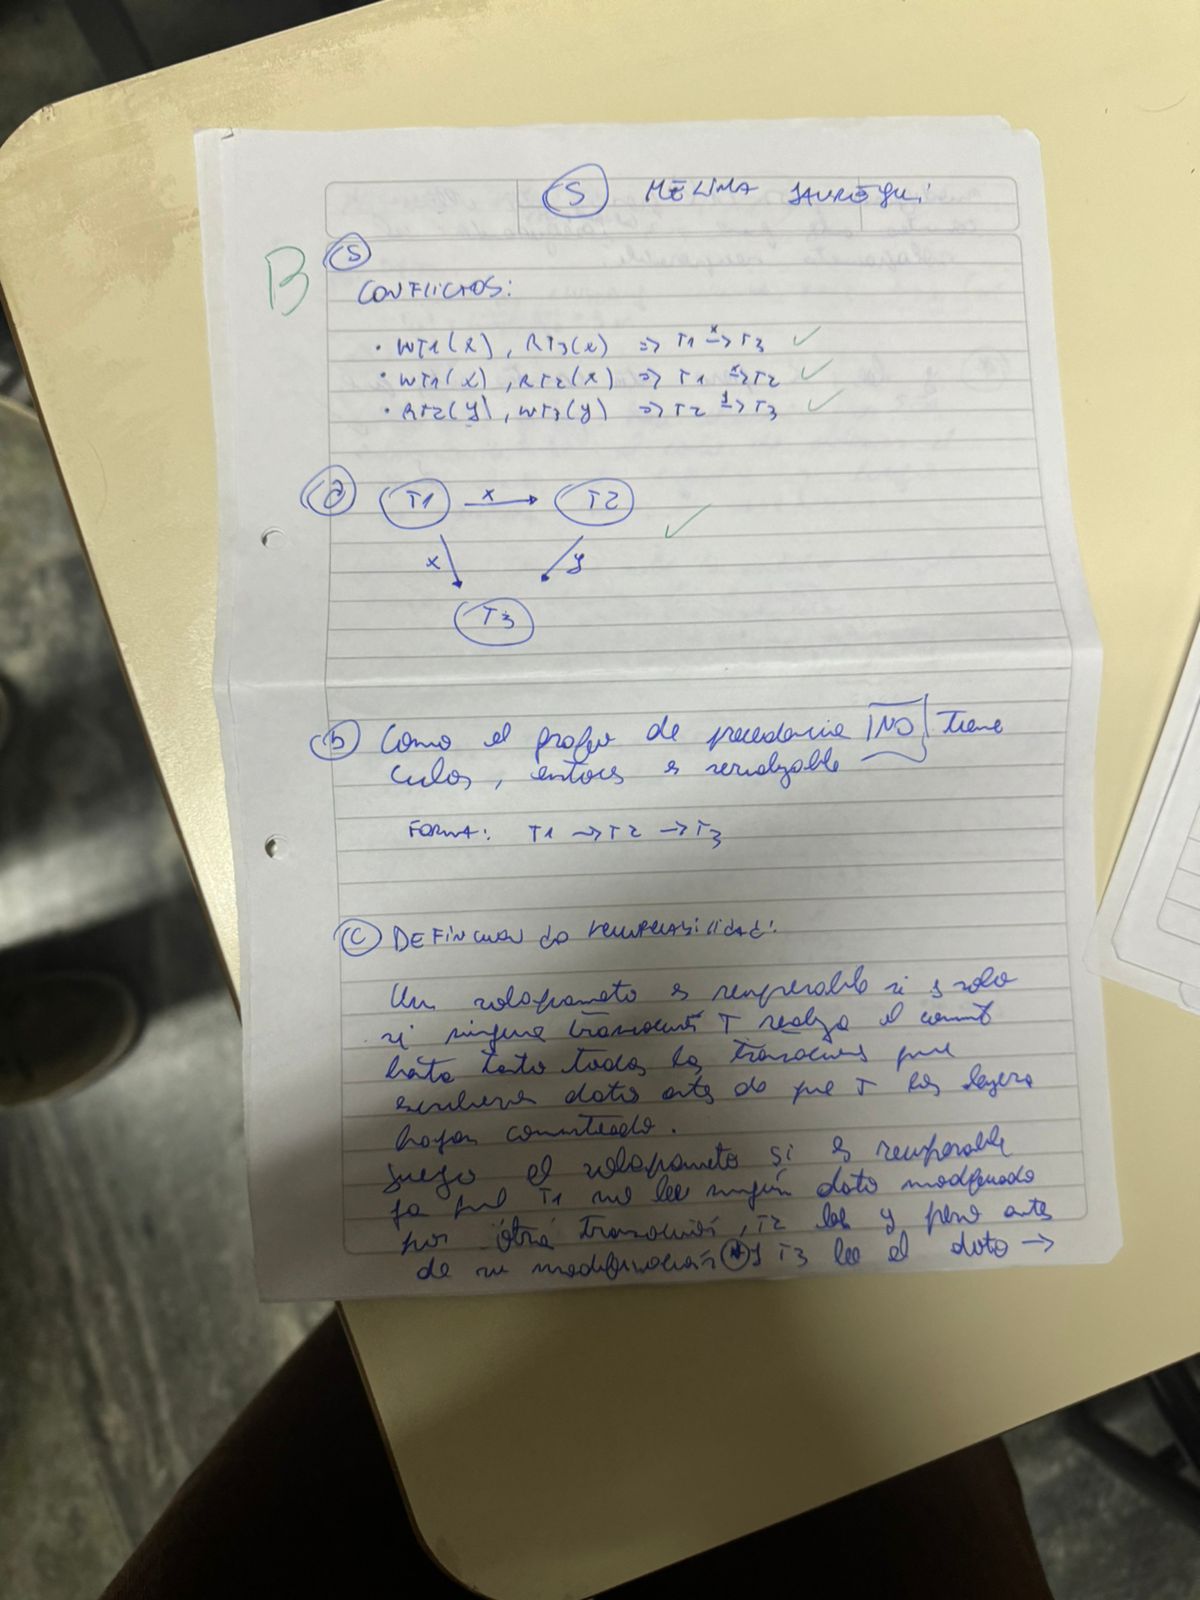 5 MELINA JAUREGUI
B 5
CONFLICTOS:
• WT1(X), RT3(X) => T1 x-> T3 ✓
• WT1(X), RT2(X) => T1 x-> T2 ✓
• RT2(Y), WT3(Y) => T2 y-> T3 ✓
a T1 x T2 ✓
x y
T3
b Como el grafo de precedencia NO tiene
ciclos, entonces es serializable
FORMA: T1 -> T2 -> T3
c DEFINICION de recuperabilidad:
Un solapamiento es recuperable si y solo
si ninguna transacción T realiza el commit
hasta tanto todas las transacciones que
escribieron datos antes de que T los leyera
hayan commiteado.
Luego el solapamiento si es recuperable
ya que T1 no lee ningún dato modificado
por otra transacción, T2 lee y pero antes
de su modificación y T3 lee el dato ->